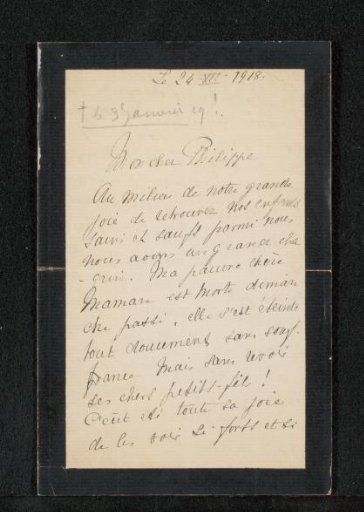 Le 24-XII-1918.
† le 3 Janvier 19!
Mon cher Philippe
Au milieu de notre grande
joie de retrouver nos enfants
sains et saufs parmi nous
nous avons un grand cha
-grin. Ma pauvre chère
Maman est morte diman
che passé, elle s'est éteinte
tout doucement sans souf-
france mais sans revoir
ses chers petits-fils!
C'eût été toute sa joie
de les voir si forts et si